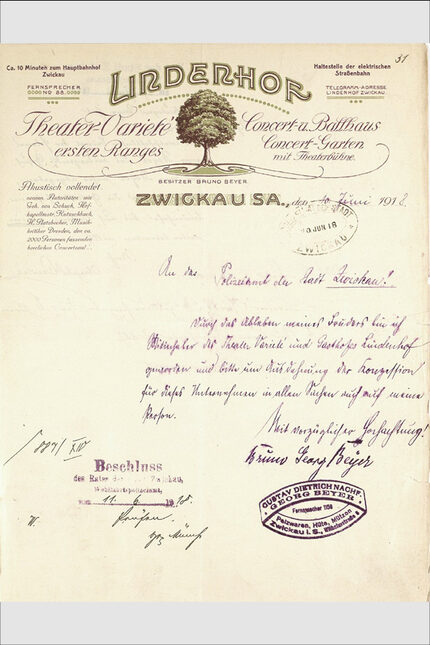 31
Ca. 10 Minuten zum Hauptbahnhof
Zwickau
FERNSPRECHER
NO 88.
LINDENHOF
Haltestelle der elektrischen
Straßenbahn
TELEGRAMM-ADRESSE
LINDENHOF ZWICKAU
Theater-Varieté
ersten Ranges
Concert-u. Ballhaus
Concert-Garten
mit Theaterbühne.
BESITZER BRUNO BEYER.
Akustisch vollendet
ZWICKAU SA., den 10. Juni 1918
10 JUN 18
An das Polizeiamt der Stadt Zwickau!
Durch das Ableben meines Bruders bin ich
Mitinhaber des Theater Varieté und Gasthofs Lindenhof
geworden und bitte um Ausdehnung der Konzession
für dieses Unternehmen in allen Sachen auch auf meine
Person.
Mit vorzüglicher Hochachtung!
Bruno Georg Beyer
Beschluss
des Rates der Stadt Zwickau,
Wohlfahrtspolizeiamt,
vom 11. 6. 1918.
GUSTAV DIETRICH NACHF.
GEORG BEYER
Fernsprecher 1159
Pelzwaren, Hüte, Mützen
Zwickau i. S.,